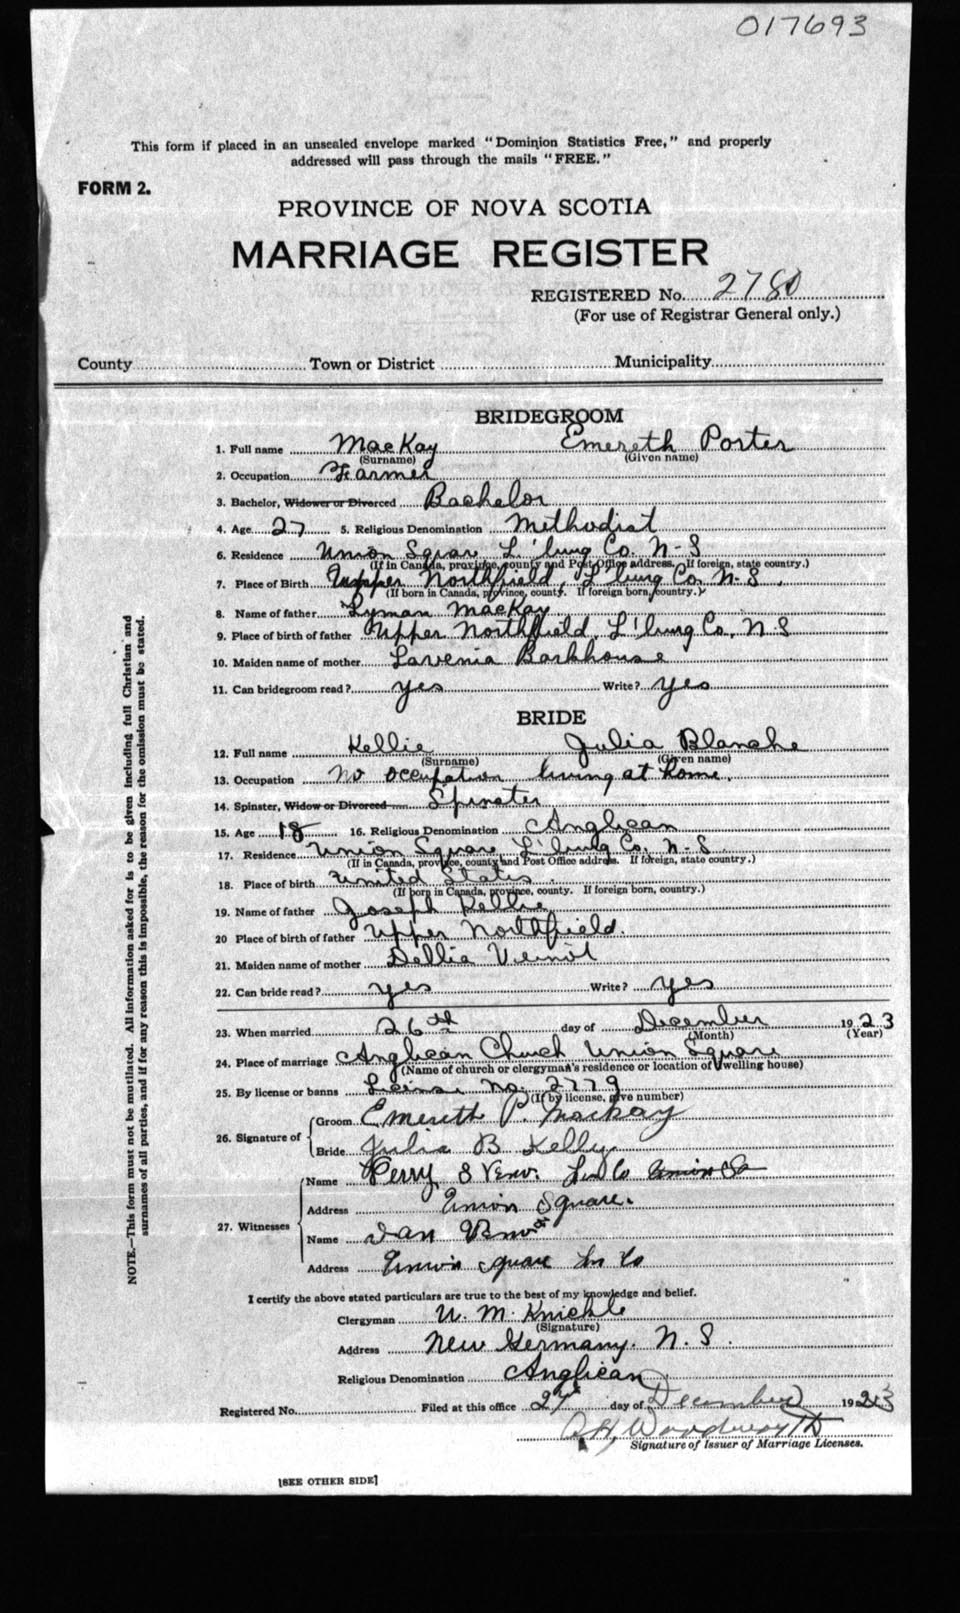 017693
This form if placed in an unsealed envelope marked "Dominion Statistics Free," and properly
addressed will pass through the mails "FREE."
FORM 2.
PROVINCE OF NOVA SCOTIA
MARRIAGE REGISTER
REGISTERED No. 2780
(For use of Registrar General only.)
County Town or District Municipality
BRIDEGROOM
1. Full name MacKay Emereth Porter
(Surname) (Given name)
2. Occupation Farmer
3. Bachelor, Widower or Divorced Bachelor
4. Age 27 5. Religious Denomination Methodist
6. Residence Union Square L'burg Co. N-S
(If in Canada, province, county and Post Office address. If foreign, state country.)
7. Place of Birth Upper Northfield, L'burg Co. N-S.
(If born in Canada, province, county. If foreign born, country.)
8. Name of father Lyman MacKay
9. Place of birth of father Upper Northfield, L'burg Co, N-S
10. Maiden name of mother Lavenia Barkhouse
11. Can bridegroom read? yes Write? yes
BRIDE
12. Full name Kellie Julia Blanche
(Surname) (Given name)
13. Occupation No occupation living at home.
14. Spinster, Widow or Divorced Spinster
15. Age 18 16. Religious Denomination Anglican
17. Residence Union Square L'burg Co. N-S.
(If in Canada, province, county and Post Office address. If foreign, state country.)
18. Place of birth United States.
(If born in Canada, province, county. If foreign born, country.)
19. Name of father Joseph Kellie
20 Place of birth of father Upper Northfield.
21. Maiden name of mother Dellia Veinot
22. Can bride read? yes Write? yes
23. When married 26th day of December 1923
(Month) (Year)
24. Place of marriage Anglican Church Union Square
(Name of church or clergyman's residence or location of dwelling house)
25. By license or banns License No. 2779
(If by license, give number)
26. Signature of Groom Emereth P. Mackay
Bride Julia B Kelly.
27. Witnesses Name Perry S Lun Co
Address Union Square.
Name
Address Union Square Lun Co
I certify the above stated particulars are true to the best of my knowledge and belief.
Clergyman W. M. Knickle
(Signature)
Address New Germany. N. S.
Religious Denomination Anglican
Registered No. Filed at this office 27 day of December 1923
Woodworth
Signature of Issuer of Marriage Licenses.
[SEE OTHER SIDE]
NOTE.—This form must not be mutilated. All information asked for is to be given including full Christian and
surnames of all parties, and if for any reason this is impossible, the reason for the omission must be stated.